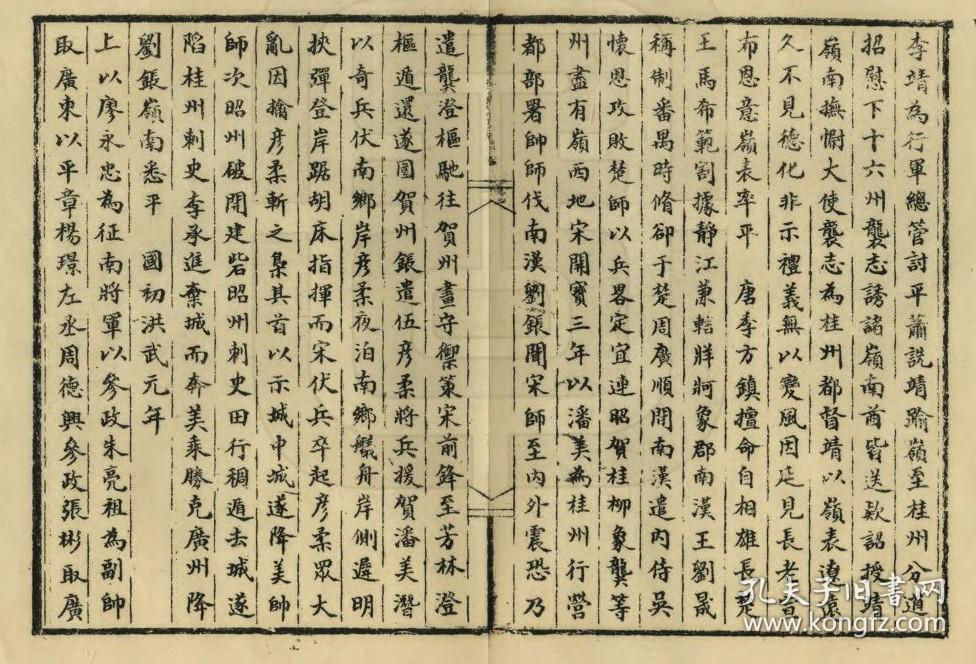 李靖為行軍總管討平蕭詵靖踰嶺至桂州分道
招慰下十六州襲志誘諸嶺南酋皆送欵詔授靖
嶺南撫慰大使襲志為桂州都督靖以嶺表遼遠
久不見德化非示禮義無以變風因延見長老宣
布恩意嶺表率平 唐季方鎮擅命自相雄長楚
王馬希範割據靜江蒹轄牂牁象郡南漢王劉晟
稱制番禺時脩卻于楚周廣順間南漢遣内侍吳
懷恩攻敗楚師以兵畧定宜連昭賀桂柳象龔等
州盡有嶺西地宋開寶三年以潘美為桂州行營
都部署帥師伐南漢劉鋹聞宋師至内外震恐乃
遣龔澄樞馳往賀州畫守禦策宋前鋒至芳林澄
樞遁還遂圍賀州鋹遣伍彦柔將兵援賀潘美潛
以奇兵伏南鄉岸彦柔夜泊南鄉艤舟岸側遲明
挾彈登岸踞胡床指揮而宋伏兵卒起彦柔眾大
亂因擒彦柔斬之梟其首以示城中城遂降美帥
師次昭州破開建砦昭州刺史田行稠遁去城遂
陷桂州刺史李承進棄城而奔美乘勝克廣州降
劉鋹嶺南悉平 國初洪武元年
上以廖永忠為征南將軍以參政朱亮祖為副帥
取廣東以平章楊璟左丞周德興參政張彬取廣
孔夫子旧书网
www.kongfz.com